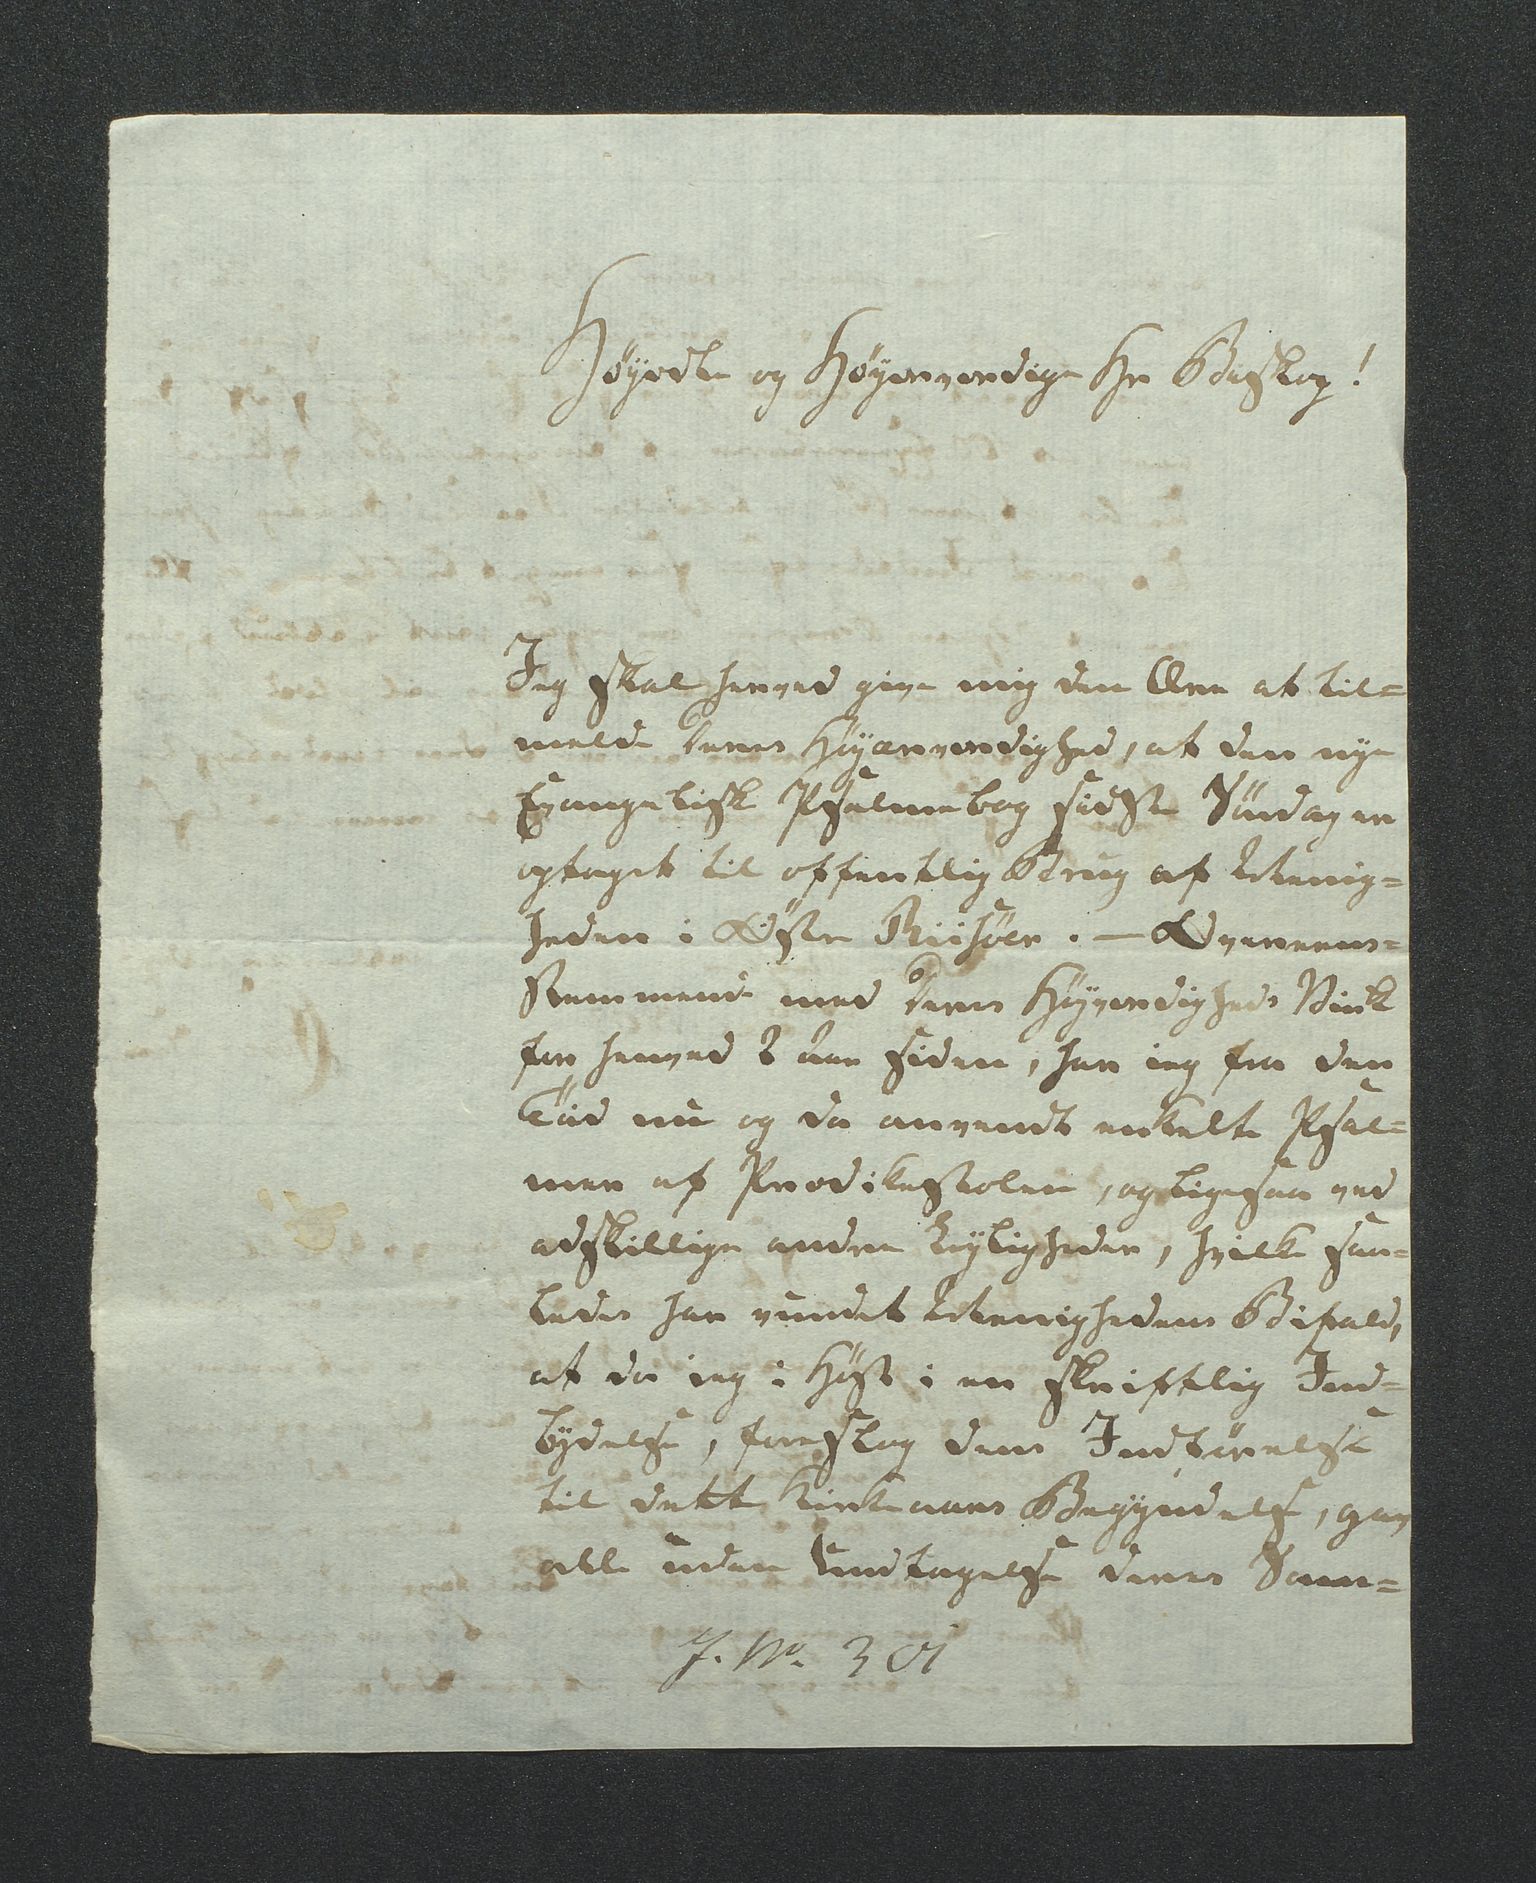 Høyædle og Høyærværdige Hr Biskop!
Jeg skal herved give mig den Ære at til=
melde Deres Høyærværdighed, at den nye
Evangelisk Psalmebog sidste Søndag er
optaget til offentlig Brug af Menig=
heden i Øster Riisöer. — Overeens=
stemmende med Deres Høyværdigheds Vink
for henved 2 Aar siden, har ieg fra den
Tiid nu og da anvendt enkelte Psal=
mer af Prædikestolen, og ligesaa ved
adskillige andre Leyligheder, hvilke saa=
ledes har vundet Menighedens Bifald,
at da ieg i Høst i en skriftlig Ind=
bydelse, foreslog dens Indförelse
til dette Kirkeaars Begyndelse, gav
alle uden Undtagelse deres Sam=
J. No. 301